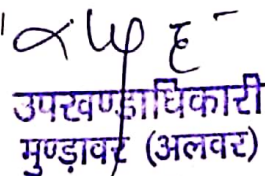 उपखण्डाधिकारी
मुण्डावर (अलवर)